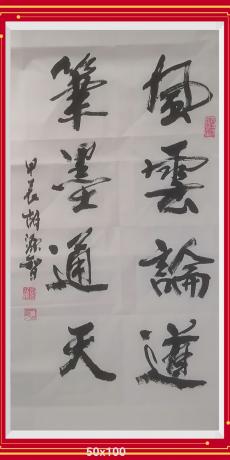 風雲論道
筆墨通天
甲辰
50x100